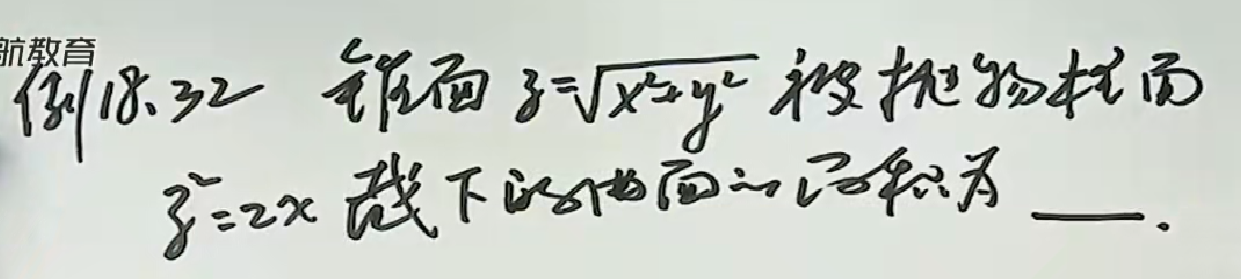 航教育
例18.32 锥面 z=√(x²+y²) 被抛物柱面
z²=2x 截下的曲面的面积为 ____.